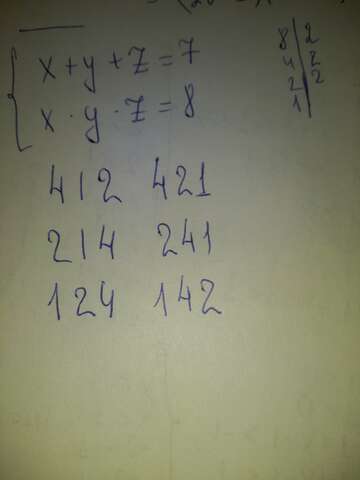 x + y + z = 7
x · y · z = 8
8 | 2
4 | 2
2 | 2
1
412 421
214 241
124 142